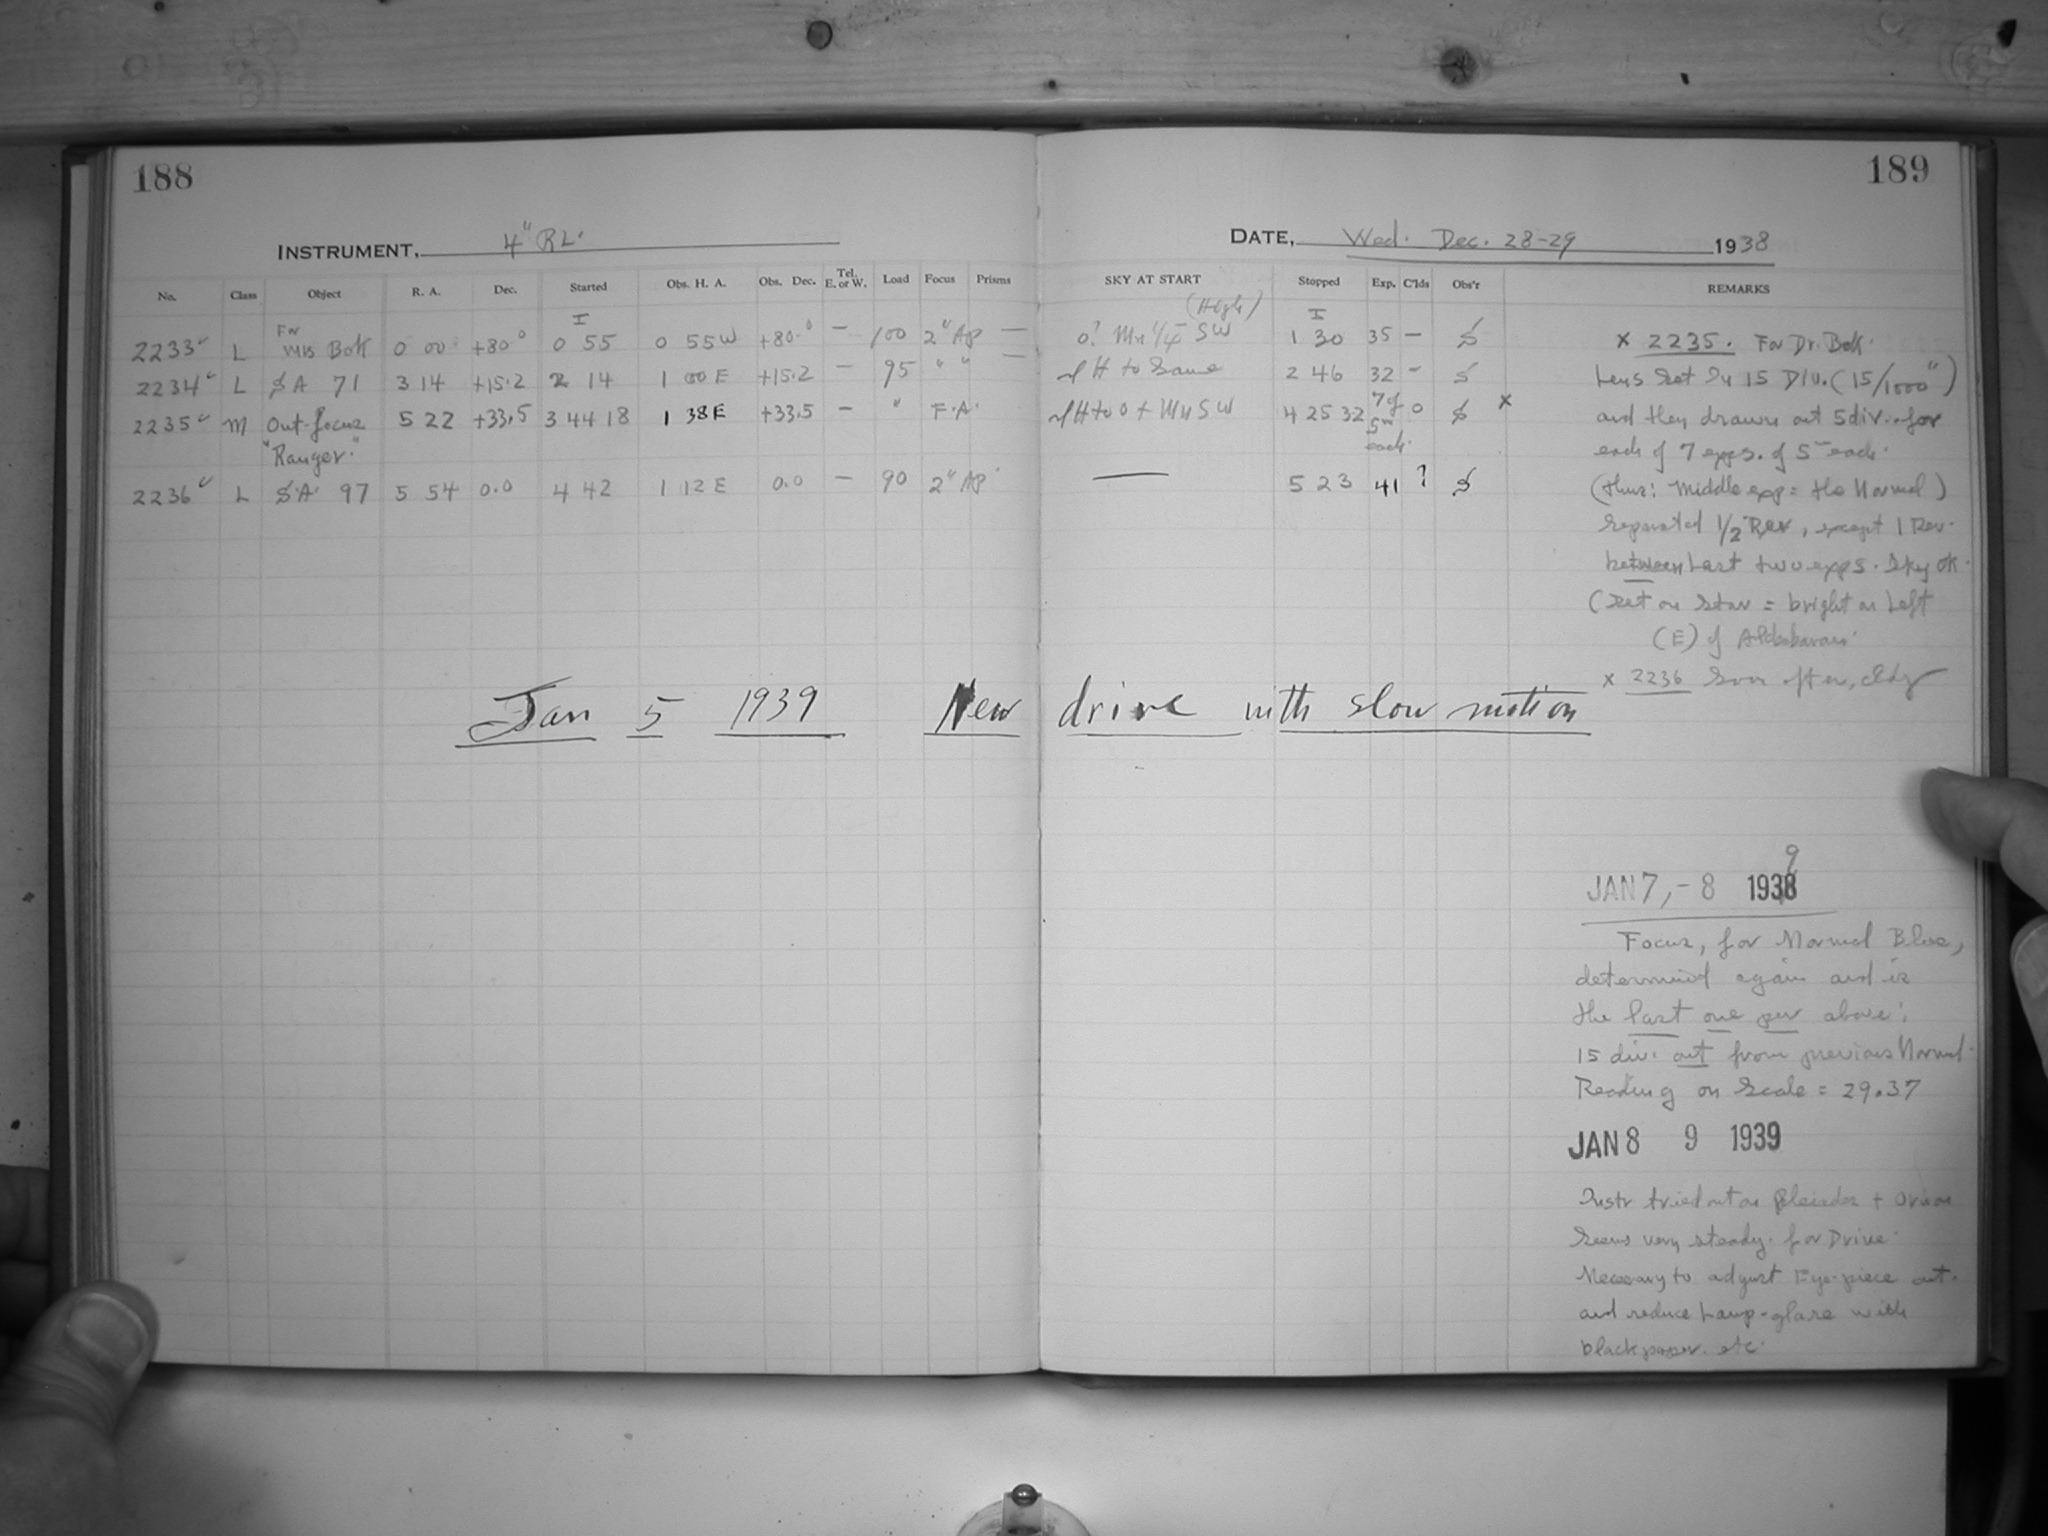 188
189
INSTRUMENT, 4" RL.
DATE, Wed. Dec. 28-29 1938
No. Class Object R. A. Dec. Started Obs. H. A. Obs. Dec. Tel. E. or W. Load Focus Prisms SKY AT START Stopped Exp. C'lds Obs'r REMARKS
2233 L For Miss Bok 0 00 +80° I 0 55 0 55 W +80.° — 100 2" Ap — (High) 0? Mn 1/4 SW I 1 30 35 — S
2234 L SA 71 3 14 +15.2 2 14 1 00 E +15.2 — 95 " " — H to Same 2 46 32 - S
2235 M Out-focus 5 22 +33.5 3 44 18 1 38 E +33.5 — " F.A. H to 0 + Mn SW 4 25 32 7 of 5m each. 0 S x
"Ranger."
2236 L S.A. 97 5 54 0.0 4 42 1 12 E 0.0 — 90 2" Ap — 5 23 41 ? S
x 2235. For Dr. Bok.
Lens Set In 15 Div. (15/1000")
and then drawn out 5 div. for
each of 7 exps. of 5m each.
(thus: Middle exp = the Normal)
Separated 1/2 Rev, except 1 Rev.
between Last two exps. Sky OK.
(Set on Star = bright on Left
(E) of Aldebaran.
x 2236 Soon after, cldy
Jan 5 1939 New drive with slow motion
JAN 7, - 8 1938 9
Focus, for Normal Blue,
determined again and is
the last one per above:
15 div. out from previous Normal.
Reading on Scale = 29.37
JAN 8 9 1939
Instr tried out on Pleiades + Orion
Seems very steady. for Drive.
Necessary to adjust Eye-piece out.
and reduce Lamp-glare with
black paper. etc.